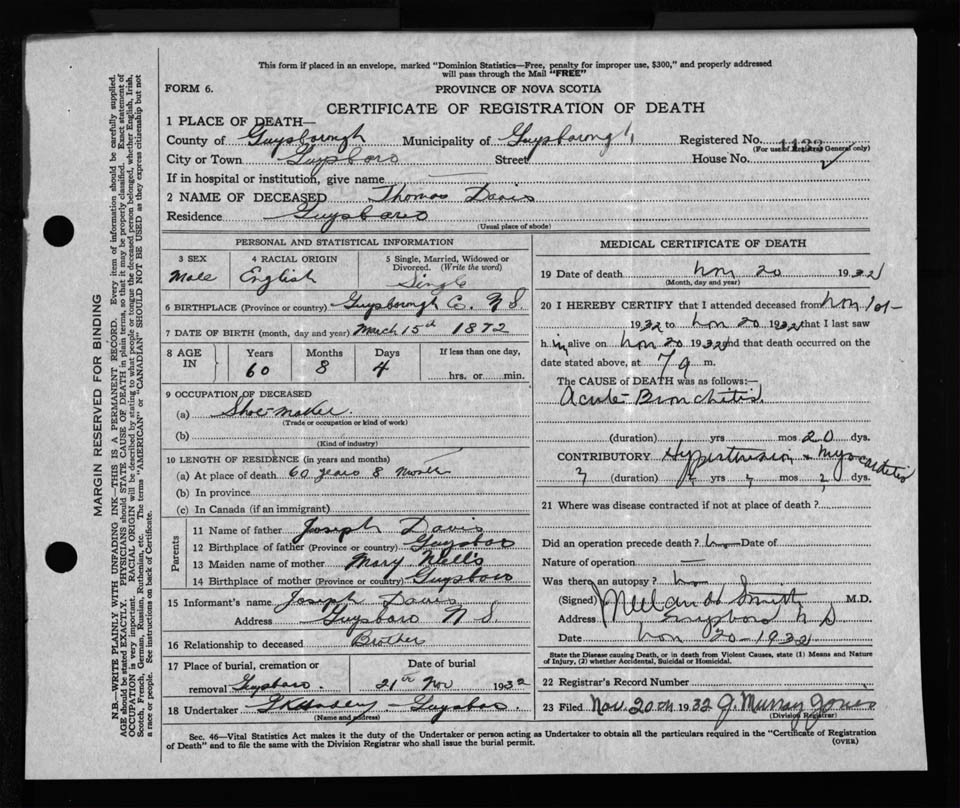 This form if placed in an envelope, marked "Dominion Statistics—Free, penalty for improper use, $300," and properly addressed
will pass through the Mail "FREE"
FORM 6.
PROVINCE OF NOVA SCOTIA
CERTIFICATE OF REGISTRATION OF DEATH
1 PLACE OF DEATH—
County of Guysborough Municipality of Guysborough Registered No. 1132
(For use of Registrar General only)
City or Town Guysboro Street House No.
If in hospital or institution, give name
2 NAME OF DECEASED Thomas Davis
Residence Guysboro
(Usual place of abode)
PERSONAL AND STATISTICAL INFORMATION
3 SEX 4 RACIAL ORIGIN 5 Single, Married, Widowed or
Divorced. (Write the word)
Male English Single
6 BIRTHPLACE (Province or country) Guysborough C. N S
7 DATE OF BIRTH (month, day and year) March 15th 1872
8 AGE IN Years Months Days If less than one day,
60 8 4
hrs. or min.
9 OCCUPATION OF DECEASED
(a) Shoe-maker
(Trade or occupation or kind of work)
(b)
(Kind of industry)
10 LENGTH OF RESIDENCE (in years and months)
(a) At place of death 60 years 8 Months
(b) In province
(c) In Canada (if an immigrant)
Parents
11 Name of father Joseph Davis
12 Birthplace of father (Province or country) Guysboro
13 Maiden name of mother Mary
14 Birthplace of mother (Province or country) Guysboro
15 Informant's name Joseph Davis
Address Guysboro N S
16 Relationship to deceased Brother
17 Place of burial, cremation or Date of burial
removal Guysboro. 21st Nov 1932
18 Undertaker Guysboro
(Name and address)
MEDICAL CERTIFICATE OF DEATH
19 Date of death Nov 20 1932
(Month, day and year)
20 I HEREBY CERTIFY that I attended deceased from Nov 1st
1932 to Nov 20 1932 that I last saw
him alive on Nov 20 1932 and that death occurred on the
date stated above, at 7 a m.
The CAUSE OF DEATH was as follows:—
Acute Bronchitis
(duration) yrs mos 20 dys.
CONTRIBUTORY Hypertension & Myocarditis
(duration) yrs mos dys.
21 Where was disease contracted if not at place of death?
Did an operation precede death? No Date of
Nature of operation —
Was there an autopsy? No
(Signed) Smith M.D.
Address Guysboro N S
Date Nov 20-1932
State the Disease causing Death, or in death from Violent Causes, state (1) Means and Nature
of Injury, (2) whether Accidental, Suicidal or Homicidal.
22 Registrar's Record Number
23 Filed Nov. 20th 1932 J. Murray Jones
(Division Registrar)
Sec. 46—Vital Statistics Act makes it the duty of the Undertaker or person acting as Undertaker to obtain all the particulars required in the "Certificate of Registration
of Death" and to file the same with the Division Registrar who shall issue the burial permit.
(OVER)
MARGIN RESERVED FOR BINDING
N.B.—WRITE PLAINLY WITH UNFADING INK—THIS IS A PERMANENT RECORD. Every item of information should be carefully supplied.
AGE should be stated EXACTLY. PHYSICIANS should STATE CAUSE OF DEATH in plain terms, so that it may be properly classified. Exact statement of
OCCUPATION is very important. RACIAL ORIGIN will be described by stating to what people or tongue the deceased person belonged, whether English, Irish,
Scotch, French, German, Russian, Ruthenian, etc. The terms "AMERICAN" or "CANADIAN" SHOULD NOT BE USED as they express citizenship but not
a race or people. See instructions on back of Certificate.